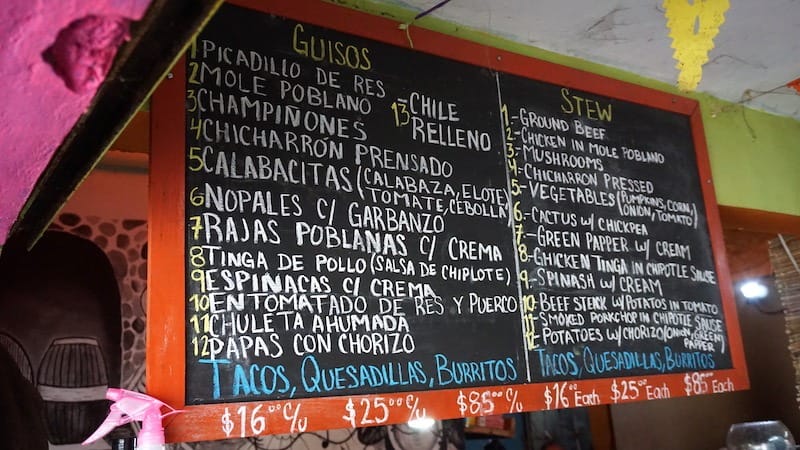 GUISOS
1 PICADILLO DE RES
2 MOLE POBLANO
3 CHAMPIÑONES
4 CHICHARRÓN PRENSADO
5 CALABACITAS (CALABAZA, ELOTE,
TOMATE, CEBOLLA)
6 NOPALES C/ GARBANZO
7 RAJAS POBLANAS C/ CREMA
8 TINGA DE POLLO (SALSA DE CHIPLOTE)
9 ESPINACAS C/ CREMA
10 ENTOMATADO DE RES Y PUERCO
11 CHULETA AHUMADA
12 PAPAS CON CHORIZO
13 -CHILE
RELLENO
TACOS, QUESADILLAS, BURRITOS
$16.00 C/U $25.00 C/U $85.00 C/U
STEW
1.- GROUND BEEF
2.- CHICKEN IN MOLE POBLANO
3.- MUSHROOMS
4.- CHICHARRON PRESSED
5.- VEGETABLES (PUMPKINS, CORN,
ONION, TOMATO)
6.- CACTUS W/ CHICKPEA
7.- GREEN PAPPER W/ CREAM
8.- GHICKEN TINGA IN CHIPOTLE SAUCE
9.- SPINASH W/ CREAM
10.- BEEF STEICY W/ POTATOS IN TOMATO
11.- SMOKED PORKCHOP IN CHIPOTLE SAUSE
12 POTATOES W/ CHORIZO (ONION, GREEN
PAPPER)
TACOS, QUESADILLAS, BURRITOS
$16.00 Each $25.00 Each $85.00 Each